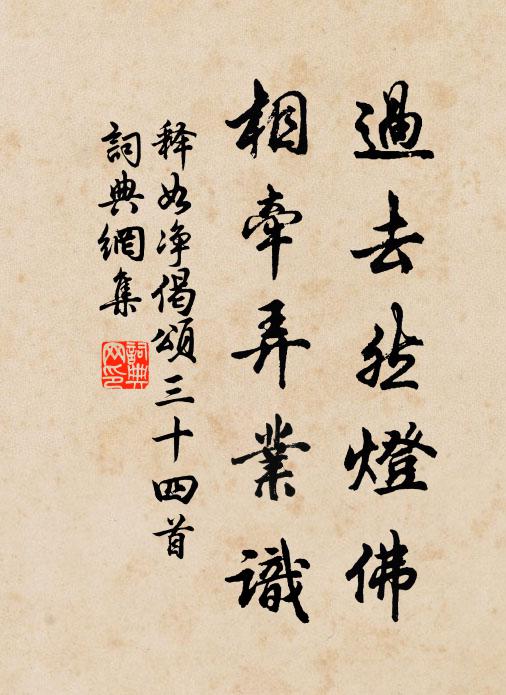 過去然燈佛
相牽弄業識
釋如净偈頌三十四首
詞典網集
詞典网印